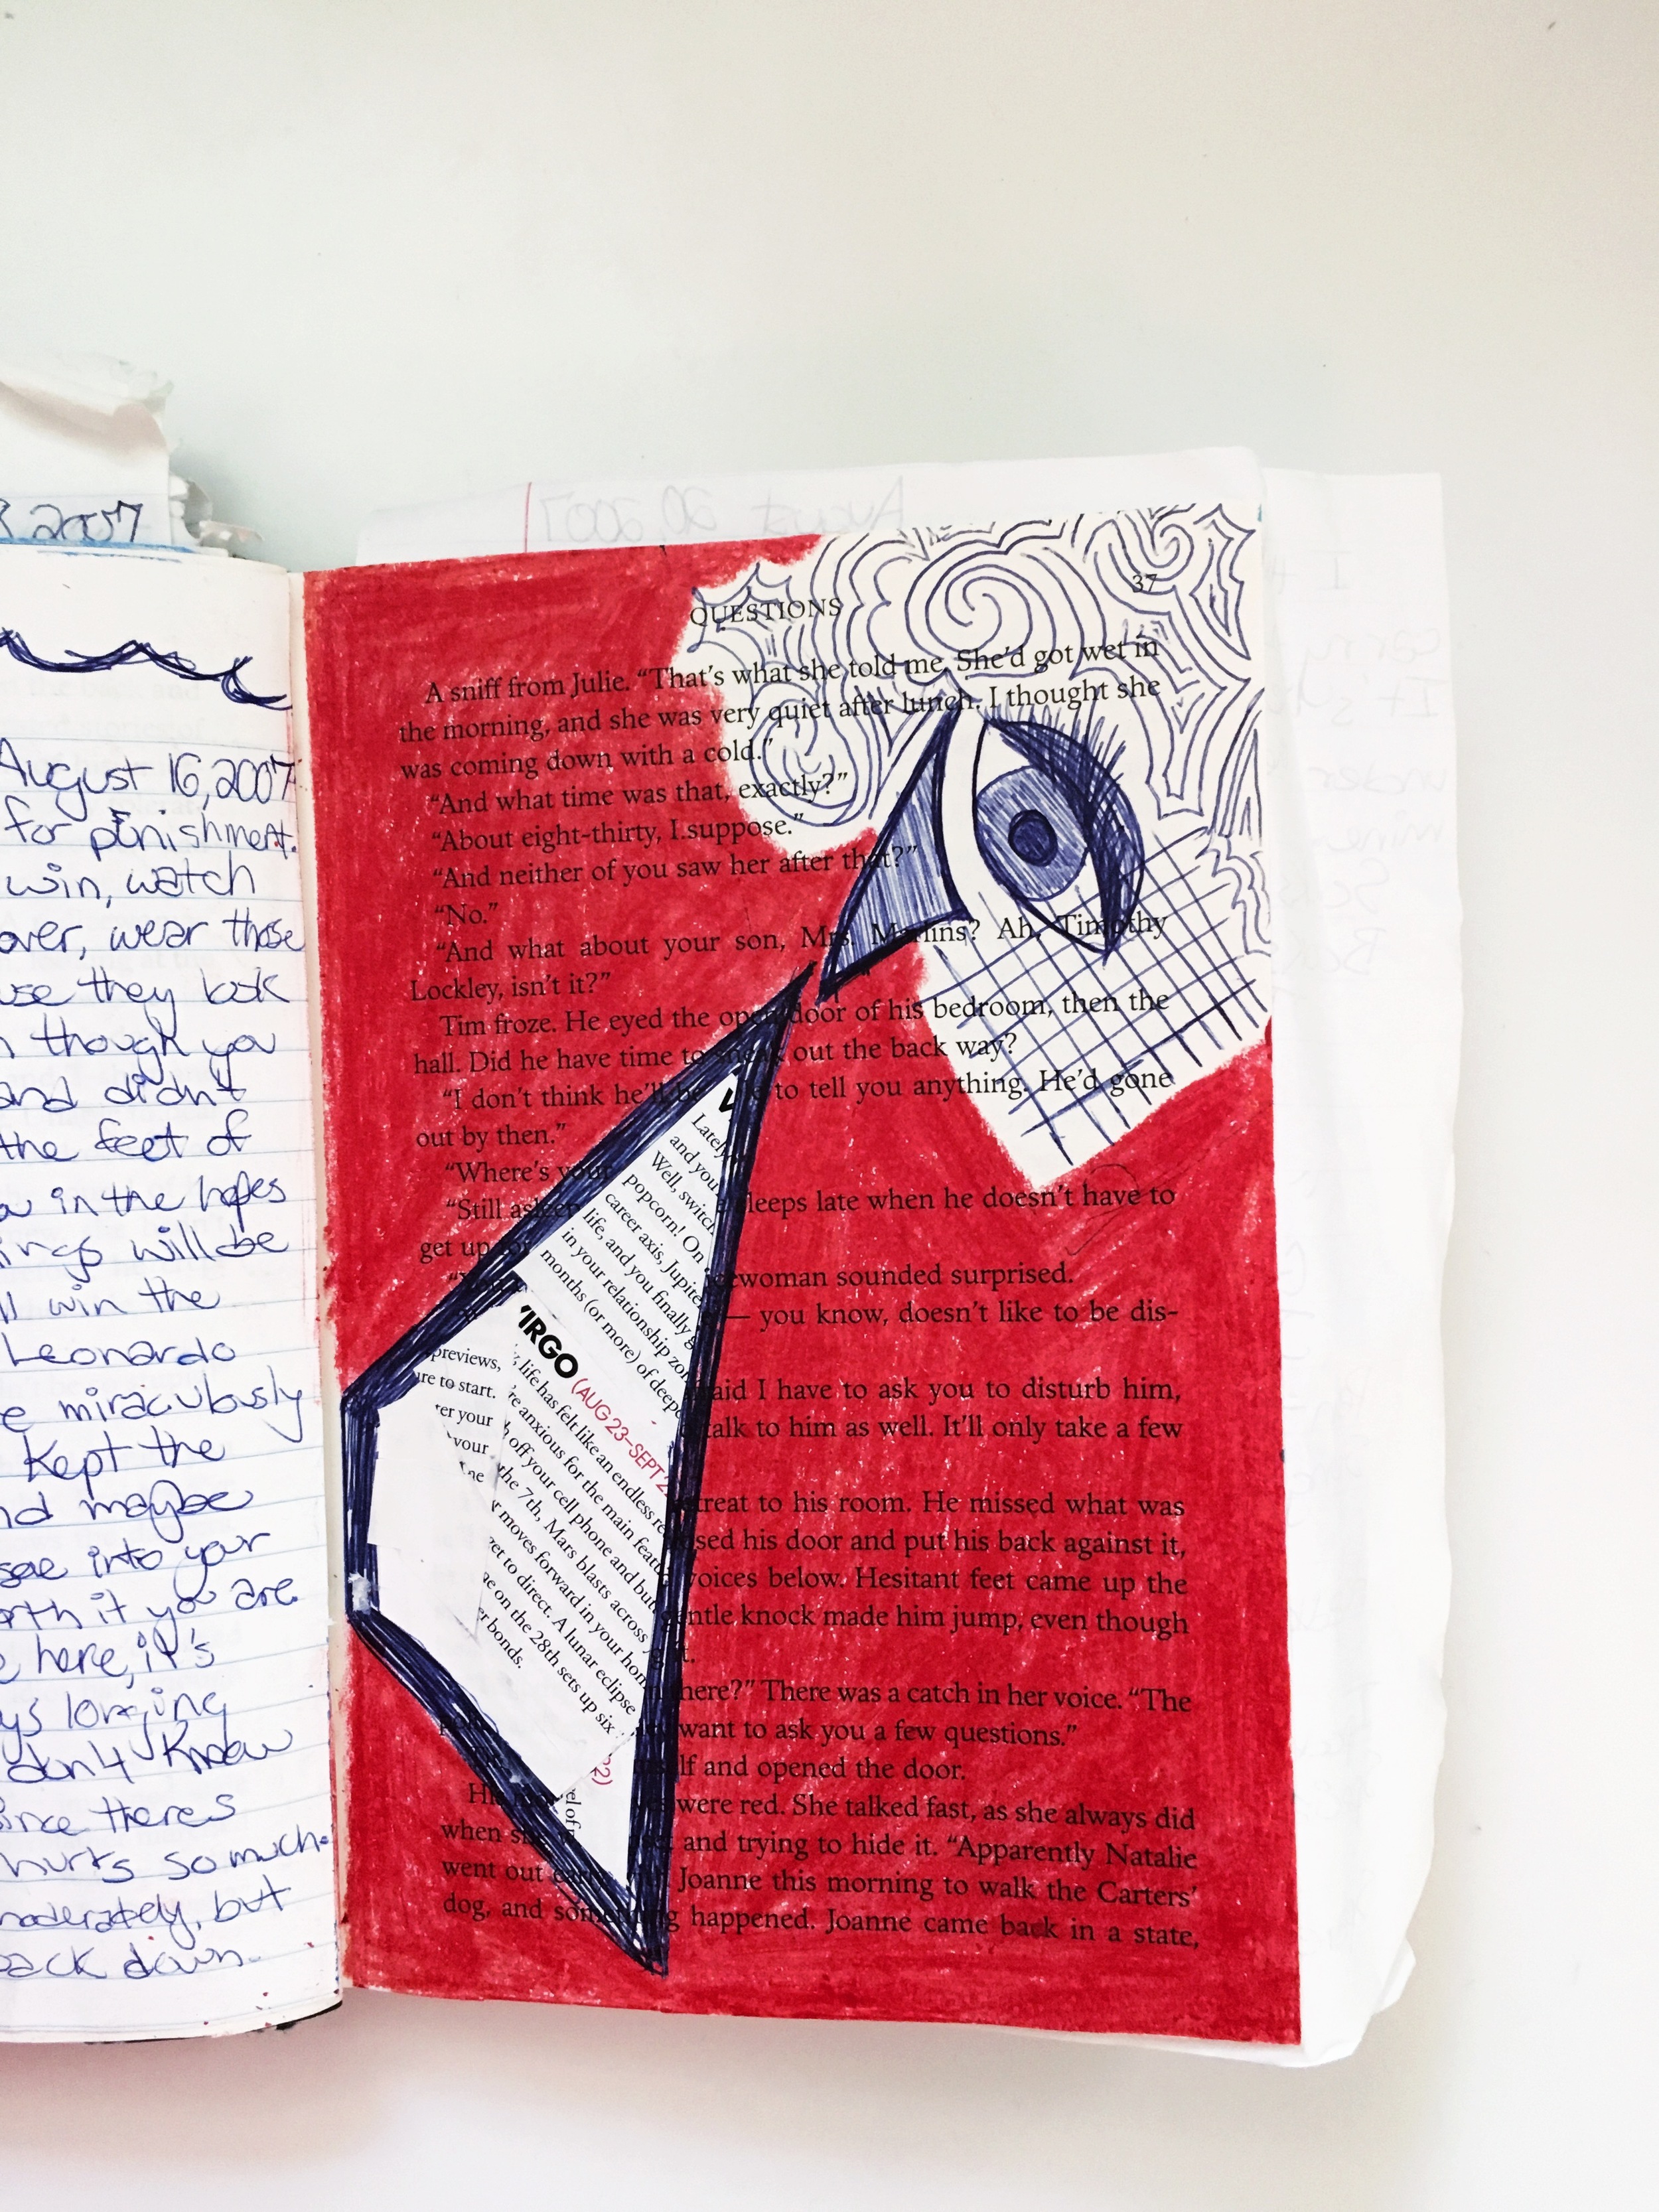 2007
August 16, 2007
for punishment.
win, watch
over, wear those
use they look
though you
and didn't
the feet of
in the hopes
ings will be
win the
Leonardo
e miraculously
kept the
nd maybe
see into your
orth it you are
here, it's
ys longing
don't know
since theres
hurts so much.
moderately, but
back down.
August 20, 2007
37
QUESTIONS
A sniff from Julie. “That’s what she told me. She’d got wet in
the morning, and she was very quiet after lunch. I thought she
was coming down with a cold.”
“And what time was that, exactly?”
“About eight-thirty, I suppose.”
“And neither of you saw her after that?”
“No.”
“And what about your son, Mrs. Martins? Ah, Timothy
Lockley, isn’t it?”
Tim froze. He eyed the open door of his bedroom, then the
hall. Did he have time to sneak out the back way?
“I don’t think he’ll be to tell you anything. He’d gone
out by then.”
“Where’s your
“Still asleep leeps late when he doesn’t have to
get up
woman sounded surprised.
— you know, doesn’t like to be dis-
aid I have to ask you to disturb him,
talk to him as well. It’ll only take a few
treat to his room. He missed what was
sed his door and put his back against it,
voices below. Hesitant feet came up the
entle knock made him jump, even though
here?” There was a catch in her voice. “The
want to ask you a few questions.”
lf and opened the door.
were red. She talked fast, as she always did
when and trying to hide it. “Apparently Natalie
went out Joanne this morning to walk the Carters’
dog, and something happened. Joanne came back in a state,
V
Lately
and you
Well, switch
popcorn! On
career axis, Jupiter
life, and you finally g
in your relationship zon
months (or more) of deepe
VIRGO (AUG 23–SEPT 2
, life has felt like an endless re
’re anxious for the main featu
h off your cell phone and but
the 7th, Mars blasts across
r moves forward in your hom
get to direct. A lunar eclipse
e on the 28th sets up six
er bonds.
previews,
ure to start.
ter your
your
22)